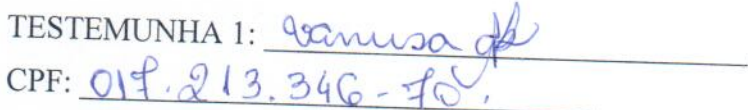 TESTEMUNHA 1: Vanusa
CPF: 017.213.346-70